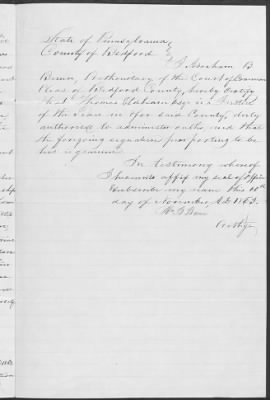 State of Pennsylvania }
County of Bedford }
I Abraham B
Bunn, Prothonotary of the Court of Common
Pleas of Bedford County, hereby certify
that Thomas Oldham esqr is a Justice
of the Peace in & for said County, duly
authorized to administer oaths, and that
the foregoing signature purporting to be
his is genuine
In testimony whereof
I hereunto affix my seal of office
& subscribe my name this 10th
day of November A.D. 1863.
A. B. Bunn
Prothy